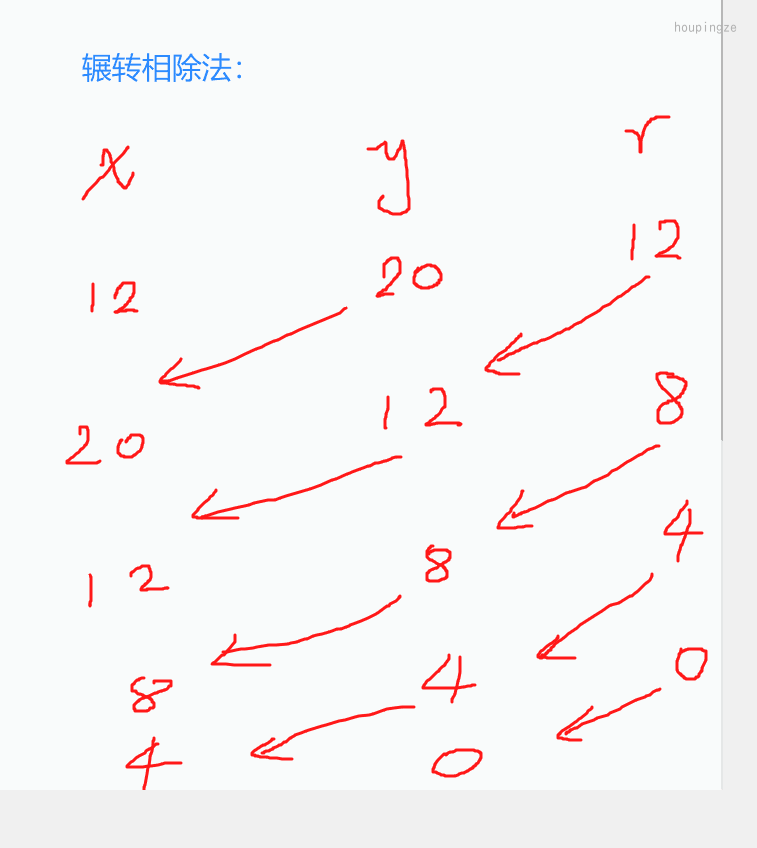 houpingze
辗转相除法:
x y r
12 20 12
20 12 8
12 8 4
8 4 0
4 0